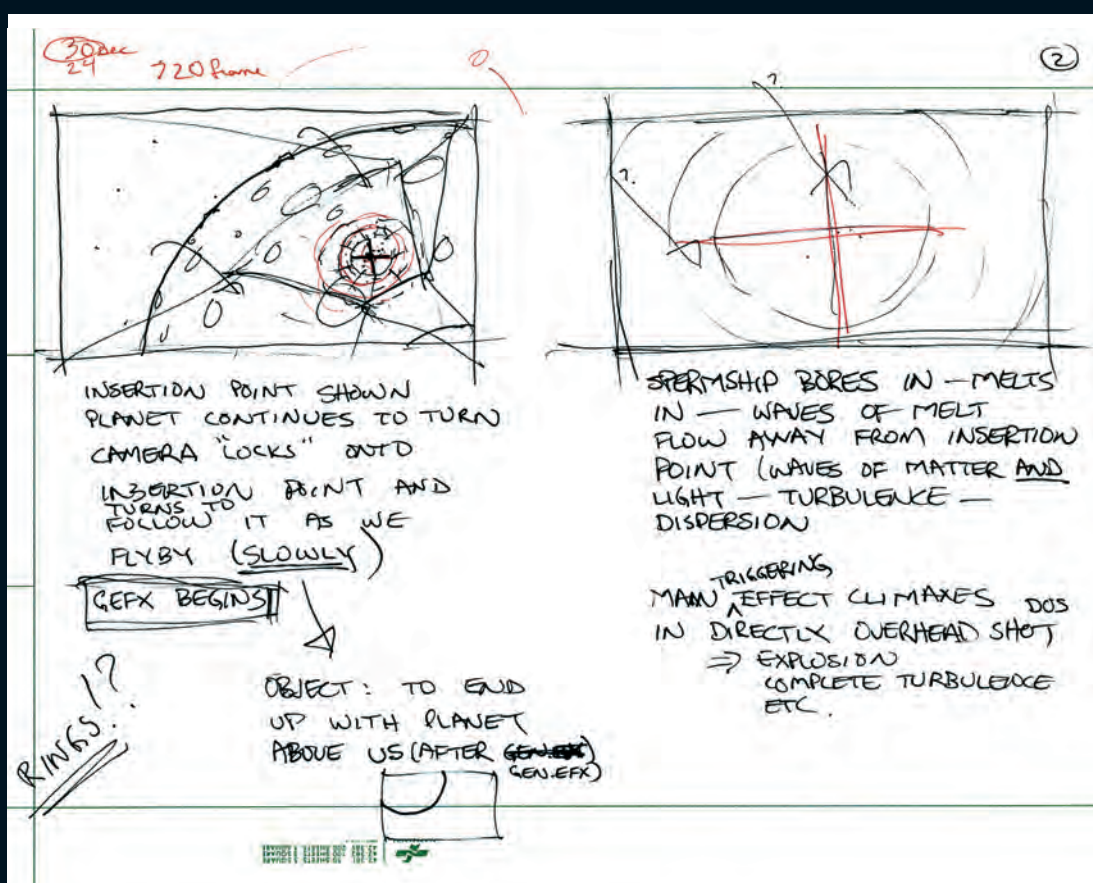 30 Dec
24
720 frame
2
INSERTION POINT SHOWN
PLANET CONTINUES TO TURN
CAMERA "LOCKS" ONTO
INSERTION POINT AND
TURNS TO
FOLLOW IT AS WE
FLYBY (SLOWLY)
GEFX BEGINS
RINGS!?
OBJECT: TO END
UP WITH PLANET
ABOVE US (AFTER
GEN.EFX)
?
?
SPERMSHIP BORES IN — MELTS
IN — WAVES OF MELT
FLOW AWAY FROM INSERTION
POINT (WAVES OF MATTER AND
LIGHT — TURBULENCE —
DISPERSION
TRIGGERING
MAIN EFFECT CLIMAXES DOS
IN DIRECTLY OVERHEAD SHOT
⇒ EXPLOSION
COMPLETE TURBULENCE
ETC.